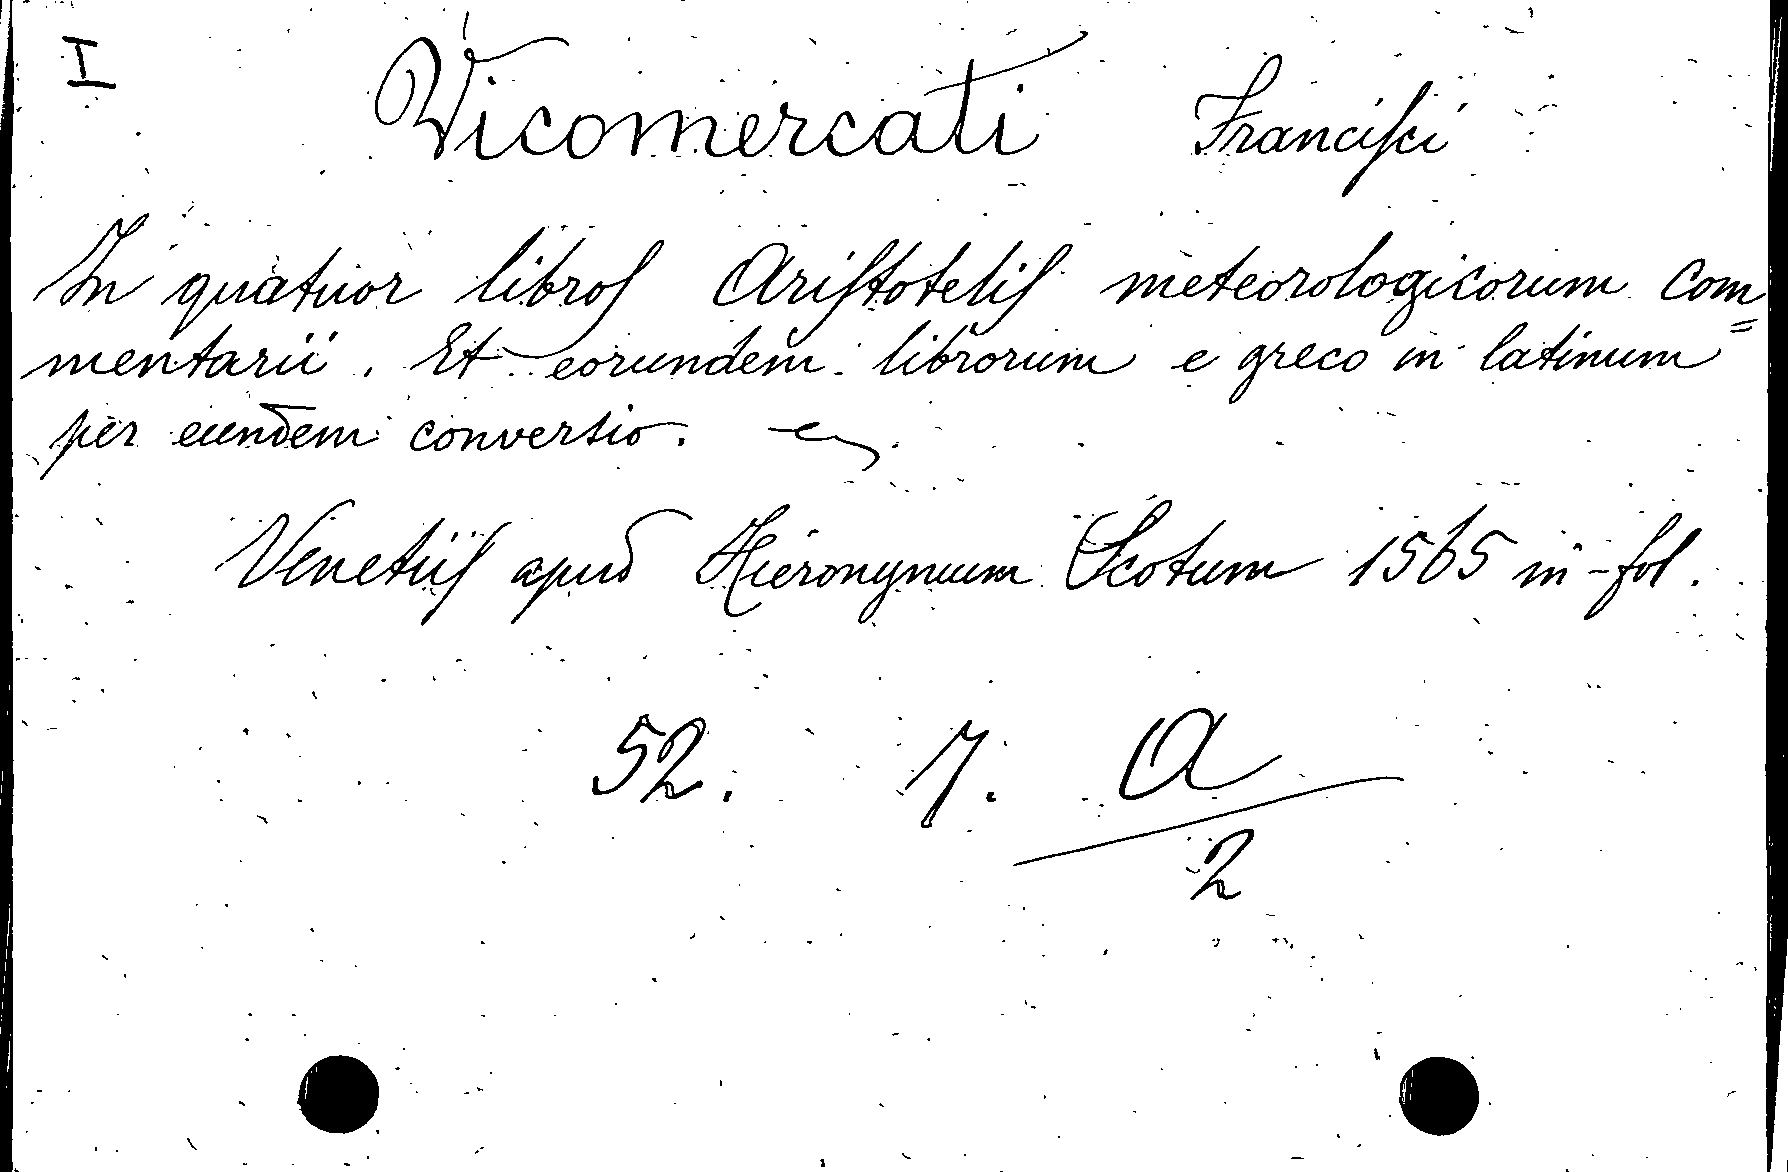 I
Vicomercati Franciſci
In quatuor libroſ Ariſtoteliſ meteorologicorum Com=
mentarii. Et eorundem librorum e greco in latinum
per eundem conversio.
Venetiiſ apud Hieronymum Scotum 1565 in-fol.
52. 7. A
2